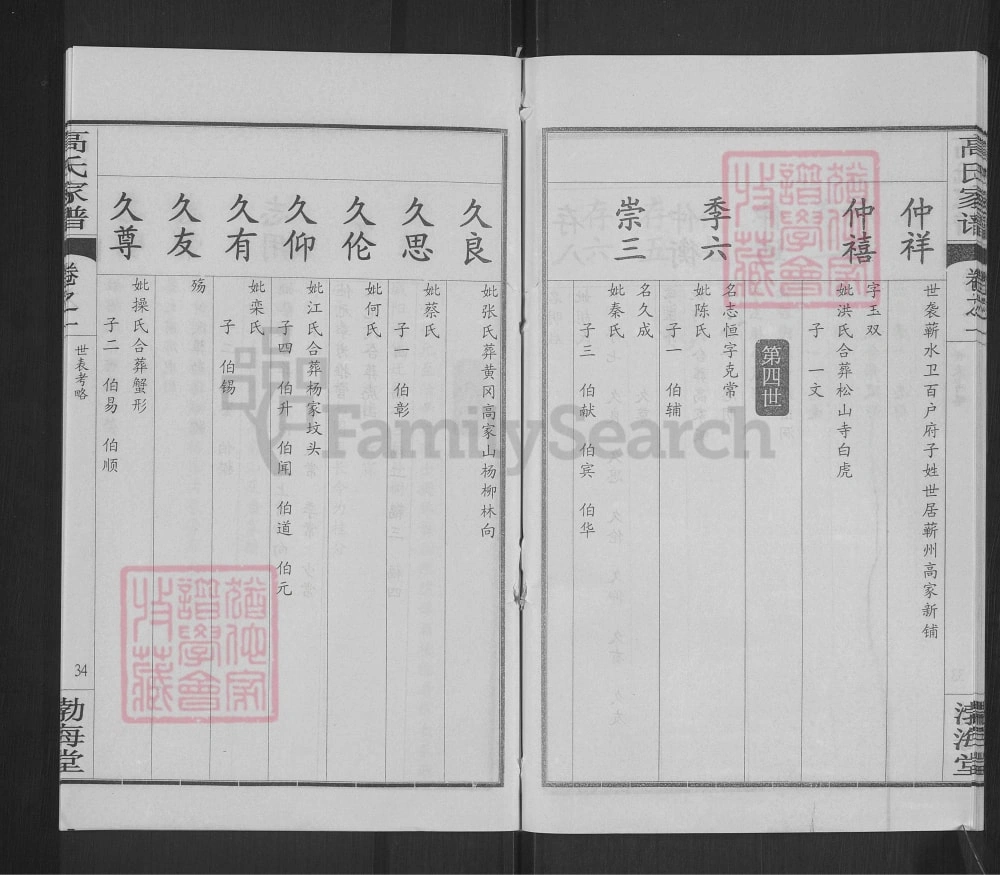 高氏家谱
卷之一
勃海堂
仲祥
世袭蕲水卫百户府子姓世居蕲州高家新铺
仲禧
字玉双
妣洪氏合葬松山寺白虎
子 一文
第四世
季六
名志恒字克常
妣陈氏
子一 伯辅
崇三
名久成
妣秦氏
子三 伯献 伯宾 伯华
久良
妣张氏葬黄冈高家山杨柳林向
久思
妣蔡氏
子一 伯彰
久伦
妣何氏
久仰
妣江氏合葬杨家坟头
子四 伯升 伯闻 伯道 伯元
久有
妣栾氏
子 伯锡
久友
殇
久尊
妣操氏合葬蟹形
子二 伯易 伯顺
高氏家谱
卷之一
世表考略
34
勃海堂
FamilySearch